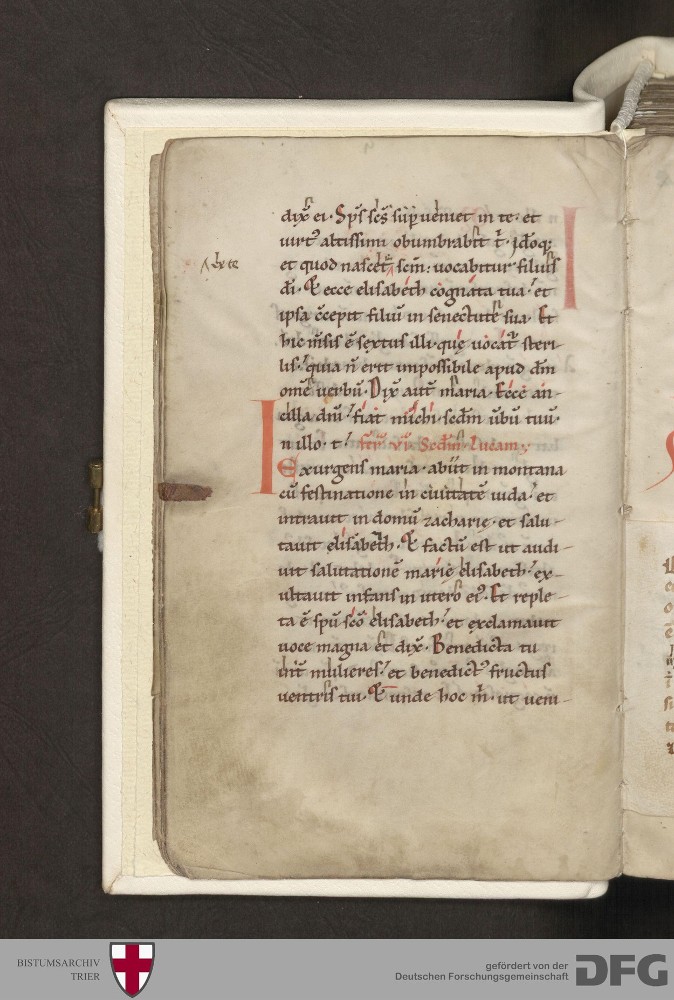 dix̄ ei · Sp̄s sc̄s sup̄ueniet in te · et
uirtꝰ altissimi obumbrab̄t t̄ · Jdeoq;
ex te
et quod nascet̄ sc̄m : uocabitur filius
dī · Et ecce elisabeth cognata tua · et
ipsa c̄cepit filiū in senectute sua · Et
hic m̄sis ē sextus illi · quę uocat̄ steri-
lis · quia n̄ erit impossibile apud dm̄
om̄e uerbū · Dix̄ aut̄ maria · Ecce an-
cilla dn̄i · fiat michi · scd̄m ūbū tuū ·
In illo · t · fer̄ vi · Scd̄m Lucam ·
Exurgens maria · abiit in montana
cū festinatione in ciuitatē iuda · et
intrauit in domū zacharię · et salu-
tauit elisabeth · Et factū est ut audi-
uit salutationē marię elisabeth · ex-
ultauit infans in utero eiꝰ · Et reple-
ta ē sp̄u sc̄o elisabeth · et exclamauit
uoce magna et dix̄ · Benedicta tu
int̄ mulieres · et benedictꝰ fructus
uentris tui · Et unde hoc m̄ · ut ueni-
BISTUMSARCHIV
TRIER
gefördert von der
Deutschen Forschungsgemeinschaft
DFG